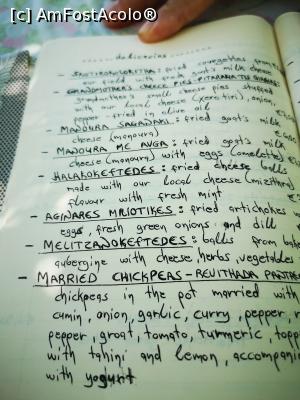 [c] AmFostAcolo®
delicacies
- : fried courgettes from
our field with fresh goat's milk cheese
GRANDMOTHER'S CHEESE PIES
grandmother's small cheese pies stuffed
with our local cheese (xerotiri), onion,
pepper - fried in olive oil
- MANOURA SAGANAKI: fried goat's milk
cheese (manoura)
- MANOURA ME AVGA: fried goat's milk
cheese (manoura) with eggs (omelette)
- HALAKOFTEDES: fried cheese balls
made with our local cheese (mizithra)
flavour with fresh mint
- AGINARES MRIOTIKES: fried artichokes
eggs, fresh green onions and dill
- MELITZANOKEFTEDES: balls from bake
aubergine with cheese, herbs, vegetables
- MARRIED CHICKPEAS - REVITHADA
chickpeas in the pot married with
cumin, onion, garlic, curry, pepper, r
pepper, groat, tomato, turmeric, topp
with tahini and lemon, accompani
with yogurt